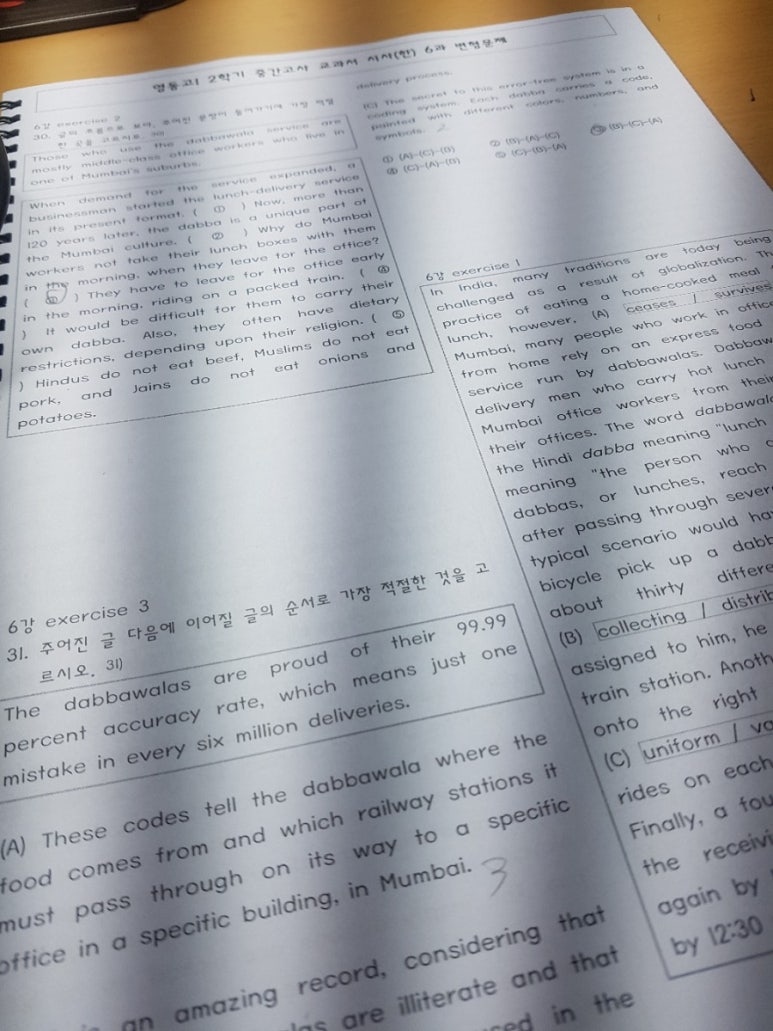 영동고1 2학기 중간고사 교과서 시사(한) 6과 변형문제
6강 exercise 2
30. 글의 흐름으로 보아, 주어진 문장이 들어가기에 가장 적절
한 곳을 고르시오. 30)
Those who use the dabbawala service are
mostly middle-class office workers who live in
one of Mumbai's suburbs.
When demand for the service expanded, a
businessman started the lunch-delivery service
in its present format. ( ① ) Now, more than
120 years later, the dabba is a unique part of
the Mumbai culture. ( ② ) Why do Mumbai
workers not take their lunch boxes with them
in the morning, when they leave for the office?
( ③ ) They have to leave for the office early
in the morning, riding on a packed train. ( ④
) It would be difficult for them to carry their
own dabba. Also, they often have dietary
restrictions, depending upon their religion. ( ⑤
) Hindus do not eat beef, Muslims do not eat
pork, and Jains do not eat onions and
potatoes.
6강 exercise 3
31. 주어진 글 다음에 이어질 글의 순서로 가장 적절한 것을 고
르시오. 31)
The dabbawalas are proud of their 99.99
percent accuracy rate, which means just one
mistake in every six million deliveries.
(A) These codes tell the dabbawala where the
food comes from and which railway stations it
must pass through on its way to a specific
office in a specific building, in Mumbai. 3
an amazing record, considering that
are illiterate and that
in the
delivery process.
(C) The secret to this error-free system is in a
coding system. Each dabba carries a code,
painted with different colors, numbers, and
symbols. 2
① (A)-(C)-(B) ② (B)-(A)-(C) ③ (B)-(C)-(A)
④ (C)-(A)-(B) ⑤ (C)-(B)-(A)
6강 exercise 1
In India, many traditions are today being
challenged as a result of globalization. Th
practice of eating a home-cooked meal
lunch, however, (A) ceases / survives
Mumbai, many people who work in office
from home rely on an express food
service run by dabbawalas. Dabbaw
delivery men who carry hot lunch
Mumbai office workers from their
their offices. The word dabbawala
the Hindi dabba meaning "lunch
meaning "the person who c
dabbas, or lunches, reach
after passing through sever
typical scenario would ha
bicycle pick up a dabb
about thirty differe
(B) collecting / distrib
assigned to him, he
train station. Anoth
onto the right
(C) uniform / va
rides on each
Finally, a fou
the receivi
again by
by 12:30